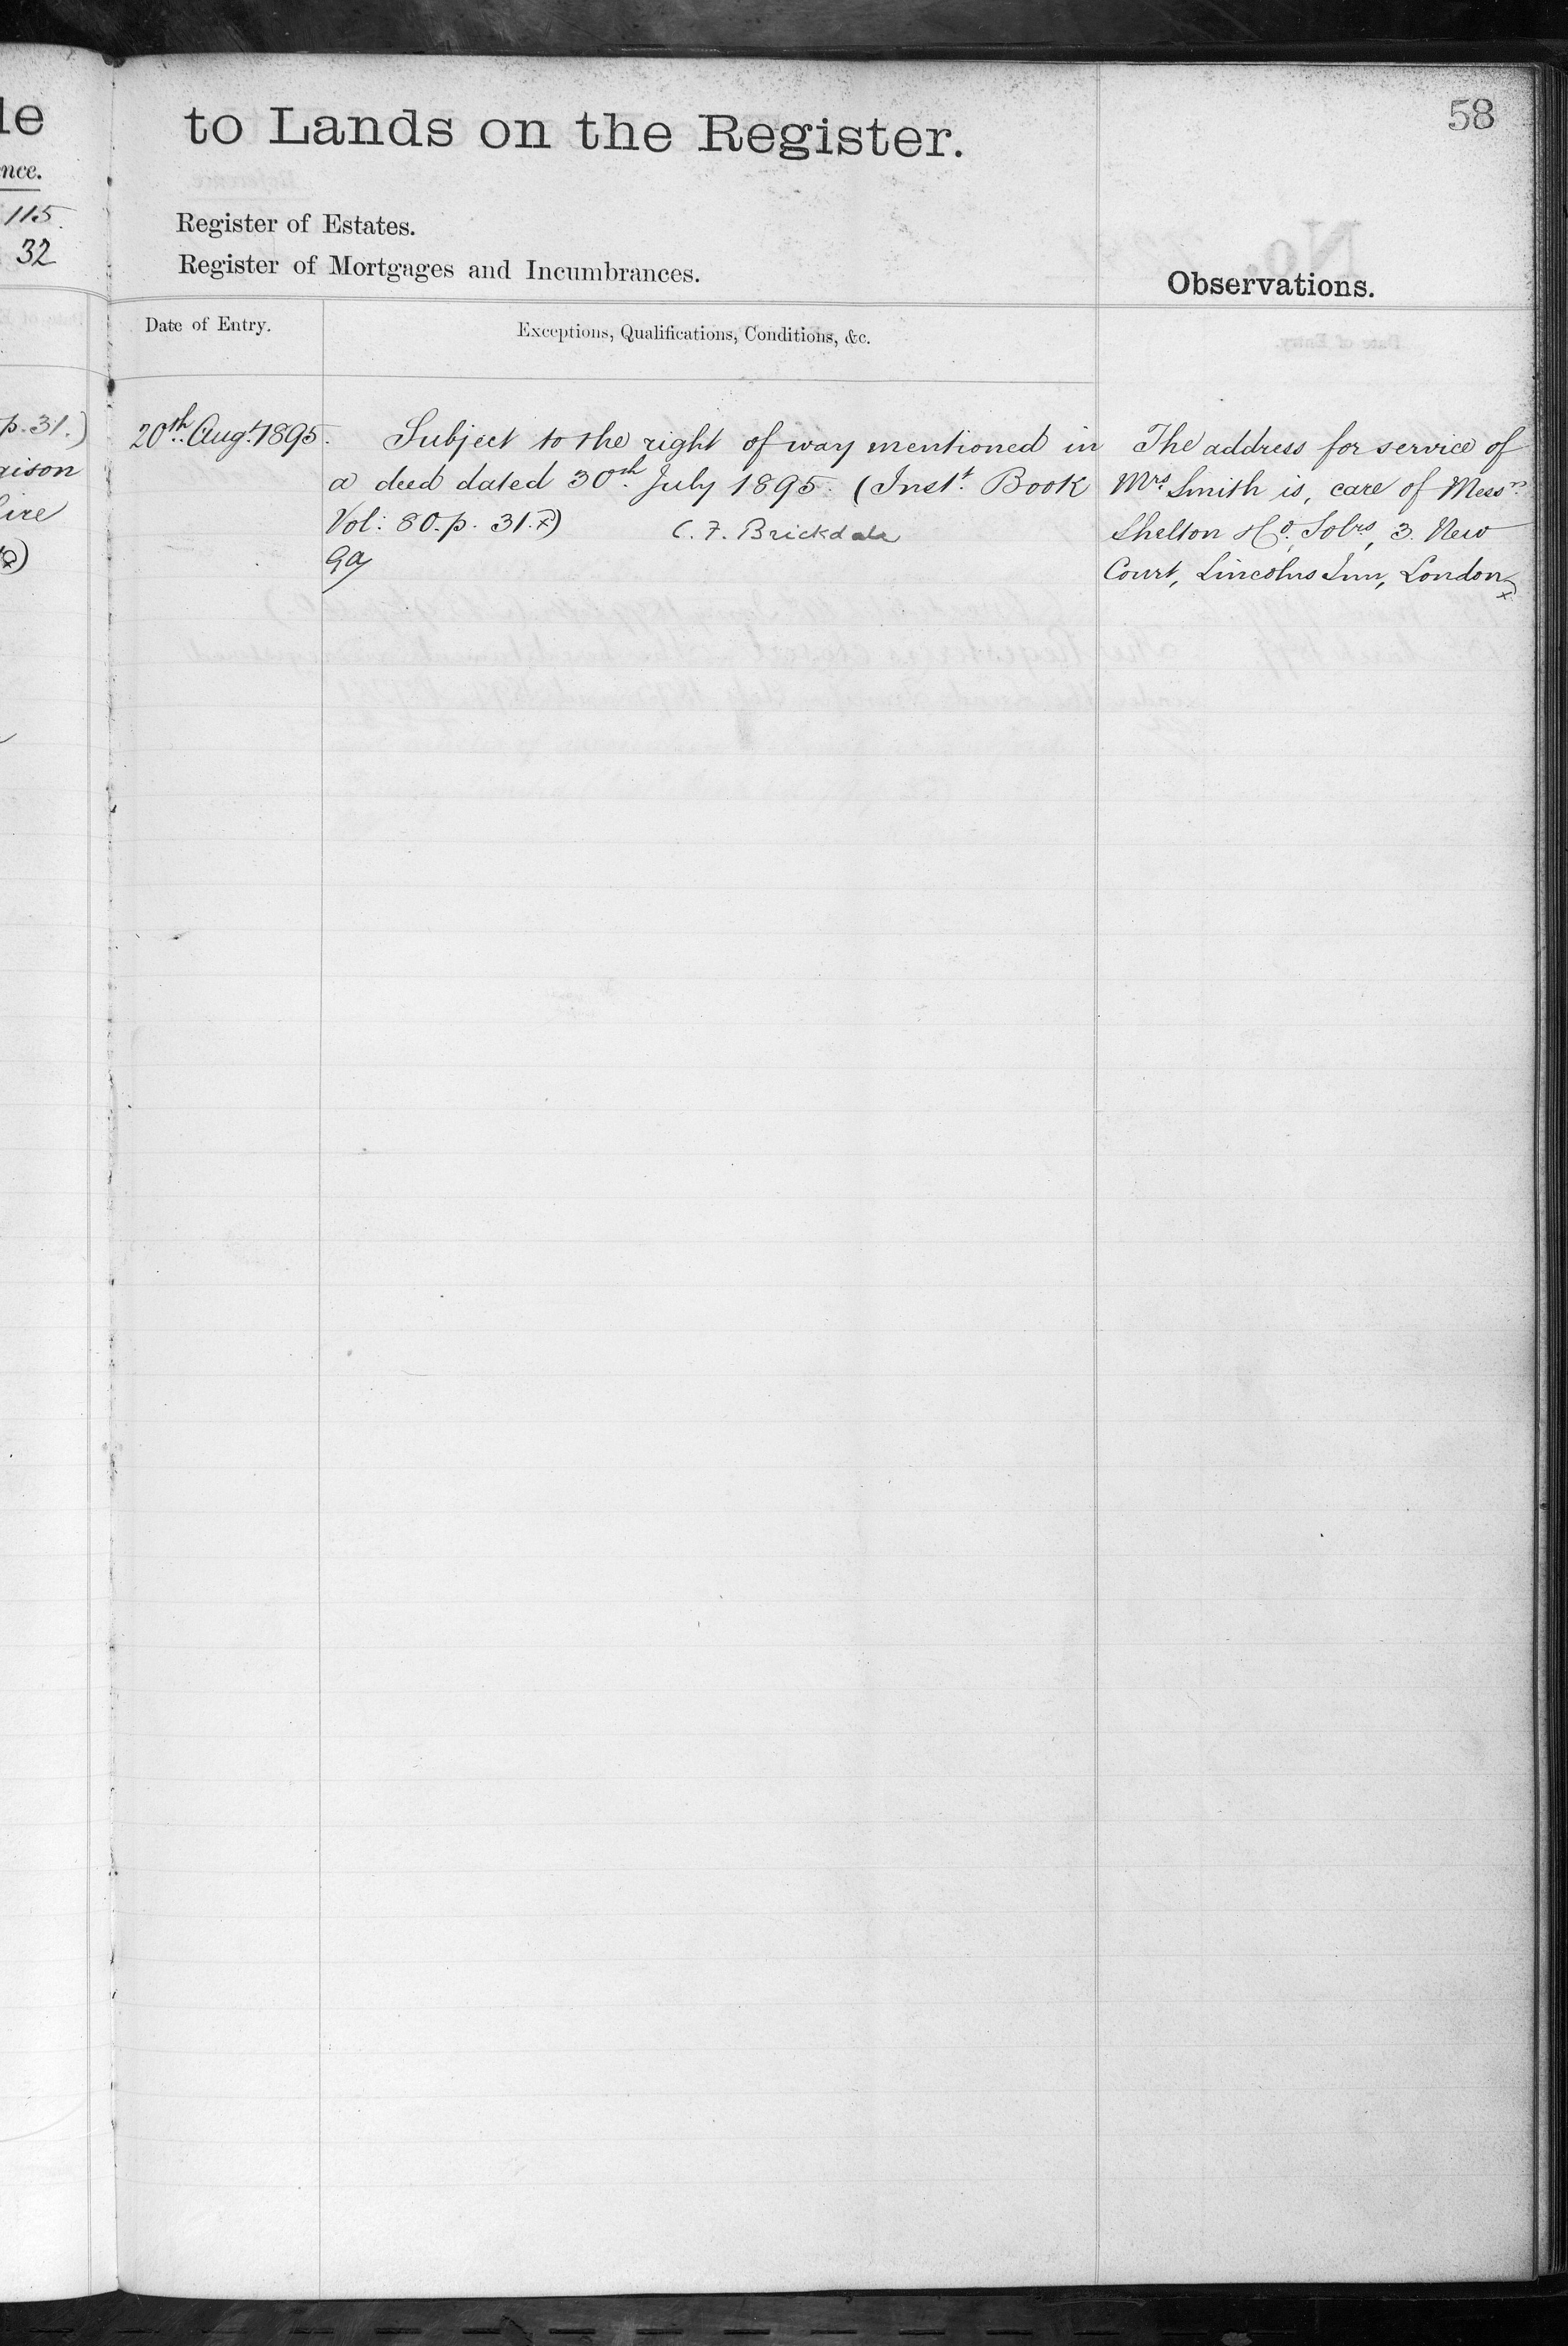 le
nce.
115.
32
p. 31.)
aison
ire
to Lands on the Register.
58
Register of Estates.
Register of Mortgages and Incumbrances.
Observations.
Date of Entry.
Exceptions, Qualifications, Conditions, &c.
20th Augt. 1895.
Subject to the right of way mentioned in
a deed dated 30th July 1895. (Inst. Book
Vol: 80. p. 31.)
C. F. Brickdale
The address for service of
Mrs Smith is, care of Messrs
Shelton & Co, Solrs, 3. New
Court, Lincolns Inn, London